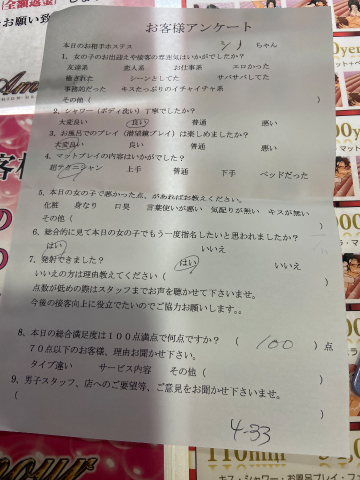 お客様アンケート
本日のお相手ホステス ちゃん
1、女の子のお出迎えや接客の雰囲気はいかがでしたか？
友達系 恋人系 お仕事系 エロかった
癒された シーンとしてた サバサバしてた
事務的だった キスたっぷりのイチャイチャ系
その他（ ）
2、シャワー（ボディ洗い）丁寧でしたか？
大変良い 良い 普通 悪い
3、お風呂でのプレイ（潜望鏡プレイ）は楽しめましたか？
大変良い 良い 普通 悪い
4、マットプレイの内容はいかがでした？
超テクニシャン 上手 普通 下手 ベッドだった
5、本日の女の子で悪かった点、があればお教えください。
化粧 身なり 口臭 言葉使いが悪い 気配りが無い キスが無い
その他（ ）
6、総合的に見て本日の女の子でもう一度指名したいと思われましたか？
はい いいえ
7、発射できました？ はい いいえ
いいえの方は理由教えてください（ ）
点数が低めの際はスタッフまでお声を聴かせて下さいませ。
今後の接客向上に役立でたいのでご協力お願いします。。
8、本日の総合満足度は１００点満点で何点ですか？（ 100 ）点
７０点以下のお客様、理由お聞かせ下さい。
タイプ違い サービス内容 その他（ ）
9、男子スタッフ、店へのご要望等、ご意見をお聞かせ下さいませ。
（ ）
4-33
110min
キス・シャワー・お風呂プレイ・フ